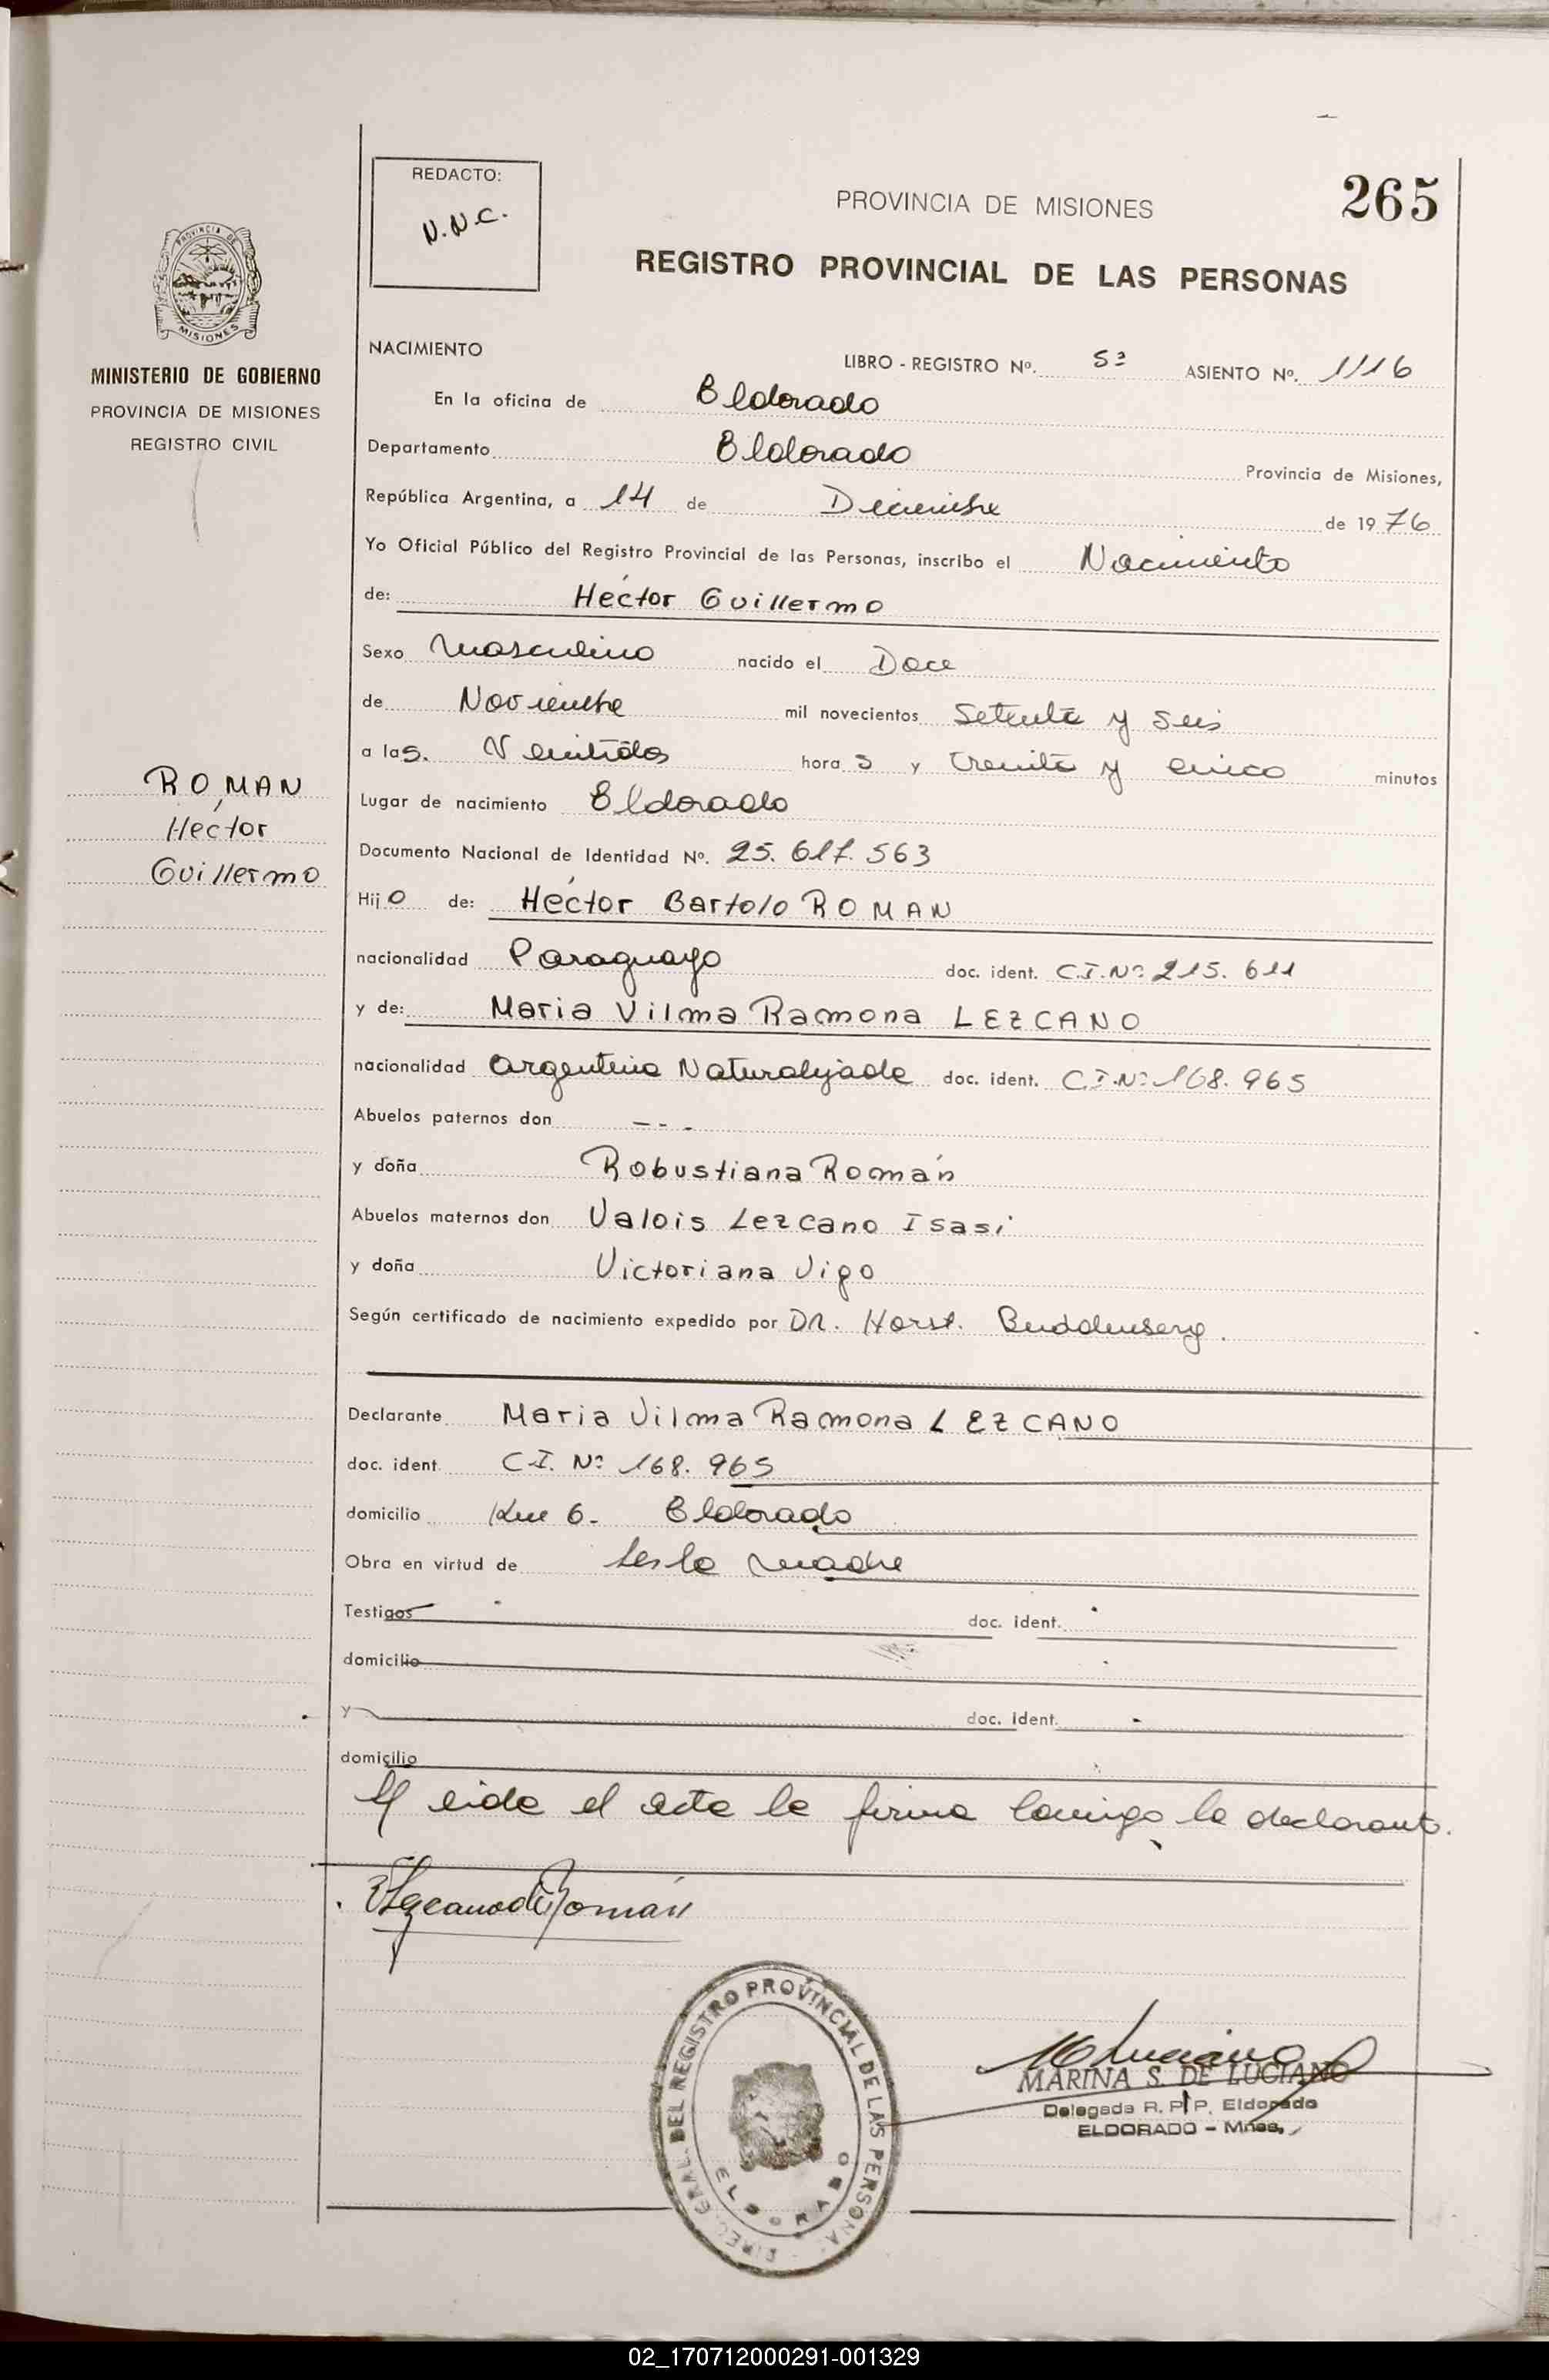 REDACTO:
N.N.C.
PROVINCIA DE MISIONES
265
REGISTRO PROVINCIAL DE LAS PERSONAS
PROVINCIA DE
MISIONES
MINISTERIO DE GOBIERNO
PROVINCIA DE MISIONES
REGISTRO CIVIL
NACIMIENTO
LIBRO - REGISTRO Nº. 5º ASIENTO Nº. 1116
En la oficina de Eldorado
Departamento Eldorado Provincia de Misiones,
República Argentina, a 14 de Diciembre de 1976
Yo Oficial Público del Registro Provincial de las Personas, inscribo el Nacimiento
de: Héctor Guillermo
Sexo Masculino nacido el Doce
de Noviembre mil novecientos Setenta y Seis
a las. Veintidos horas y treinta y cinco minutos
ROMAN
Héctor
Guillermo
Lugar de nacimiento Eldorado
Documento Nacional de Identidad Nº. 25.617.563
Hijo de: Héctor Bartolo ROMAN
nacionalidad Paraguayo doc. ident. C.I.Nº 215.611
y de: Maria Vilma Ramona LEZCANO
nacionalidad Argentina Naturalizada doc. ident. C.I.Nº 168.965
Abuelos paternos don ---
y doña Robustiana Román
Abuelos maternos don Valois Lezcano Isasi
y doña Victoriana Vigo
Según certificado de nacimiento expedido por DR. Horst. Buddenberg.
Declarante Maria Vilma Ramona LEZCANO
doc. ident. C.I. Nº 168.965
domicilio Km 6- Eldorado
Obra en virtud de ser la madre
Testigos doc. ident.
domicilio
y doc. ident.
domicilio
Leida el acta la firma conmigo la declarante.
Lezcano de Román
DIREC. GRAL. DEL REGISTRO PROVINCIAL DE LAS PERSONAS
ELDORADO
MLuciano
MARINA S. DE LUCIANO
Delegada R. P. P. Eldorado
ELDORADO - Mnes.
02_170712000291-001329